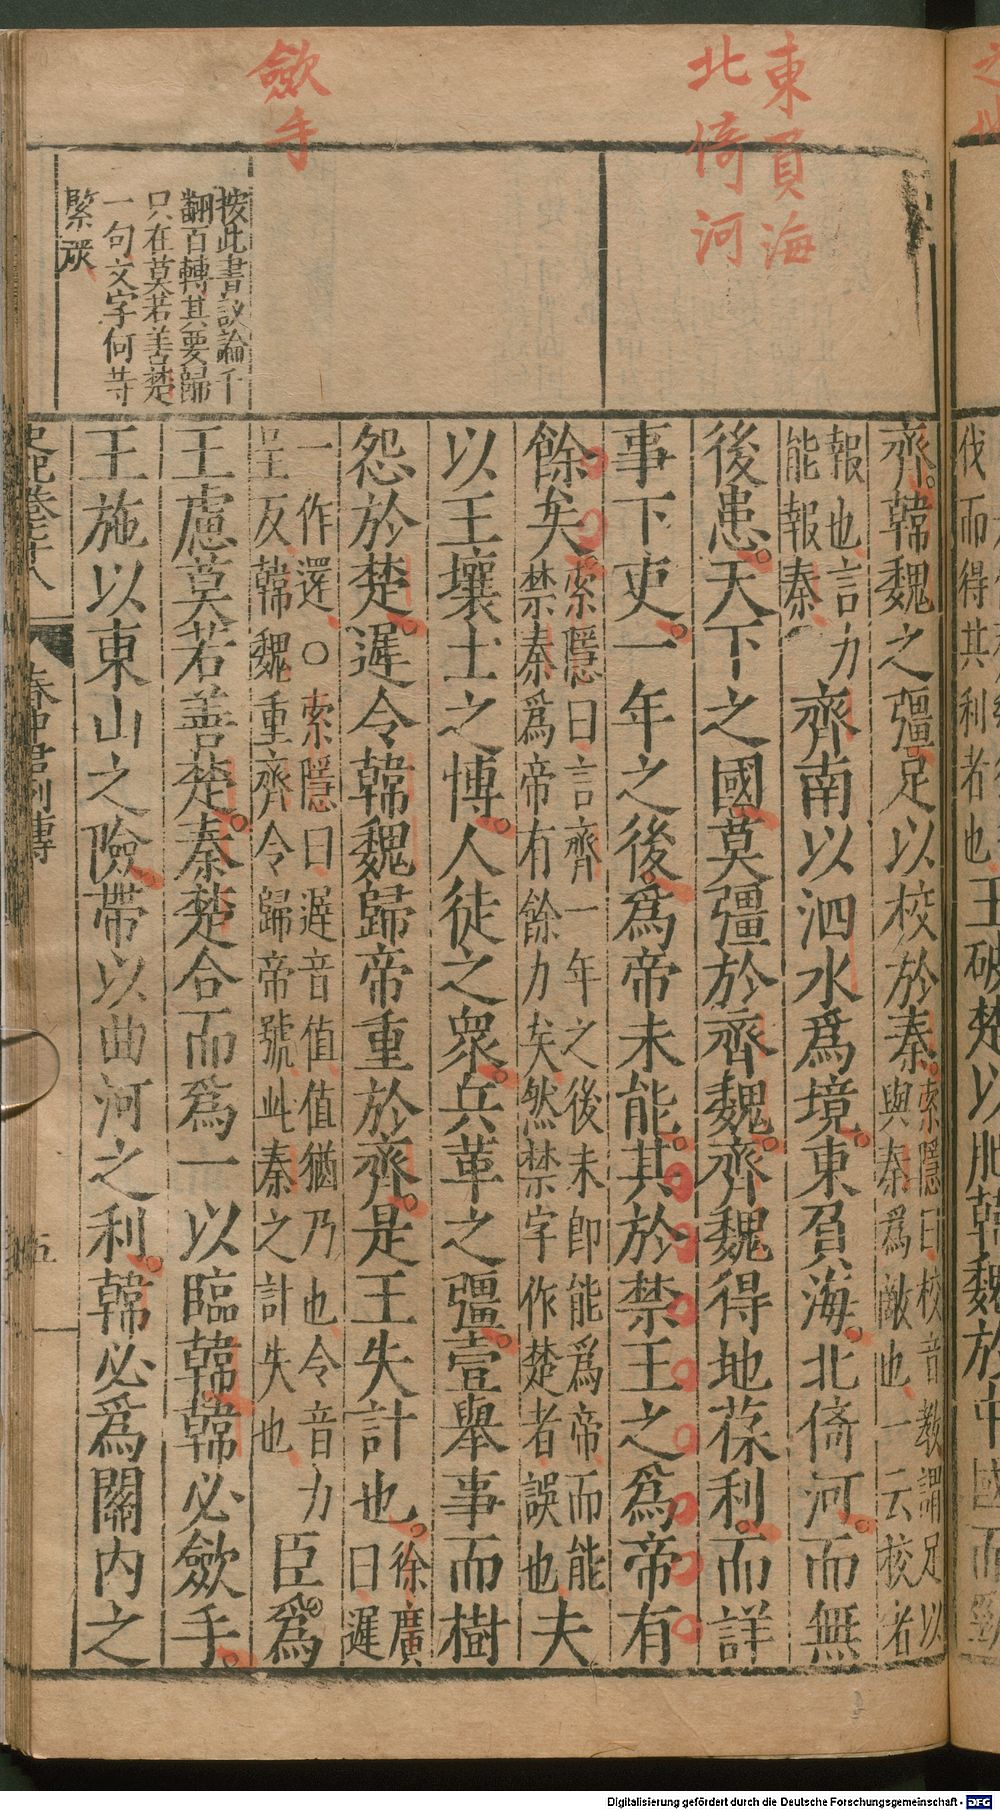 東負海
北倚河
斂手
按此書議論千
翻百轉其要歸
只在莫若善楚
一句文字何等
緊嚴
齊韓魏之彊足以校於秦索隱曰校音教謂足以
與秦爲敵也一云校者
報也言力
能報秦齊南以泗水爲境東負海北倚河而無
後患天下之國莫彊於齊魏齊魏得地葆利而詳
事下吏一年之後爲帝未能其於禁王之爲帝有
餘矣索隱曰言齊一年之後未即能爲帝而能
禁秦爲帝有餘力矣然禁字作楚者誤也夫
以王壤土之博人徒之衆兵革之彊壹舉事而樹
怨於楚遲令韓魏歸帝重於齊是王失計也徐廣
曰遲
一作還○索隱曰遲音値値猶乃也令音力
呈反韓魏重齊令歸帝號此秦之計失也臣爲
王慮莫若善楚秦楚合而爲一以臨韓韓必斂手
王施以東山之險帶以曲河之利韓必爲關內之
春申君列傳
五
伐而得其利者也王破楚以肥韓魏於中國而勁
Digitalisierung gefördert durch die Deutsche Forschungsgemeinschaft - DFG